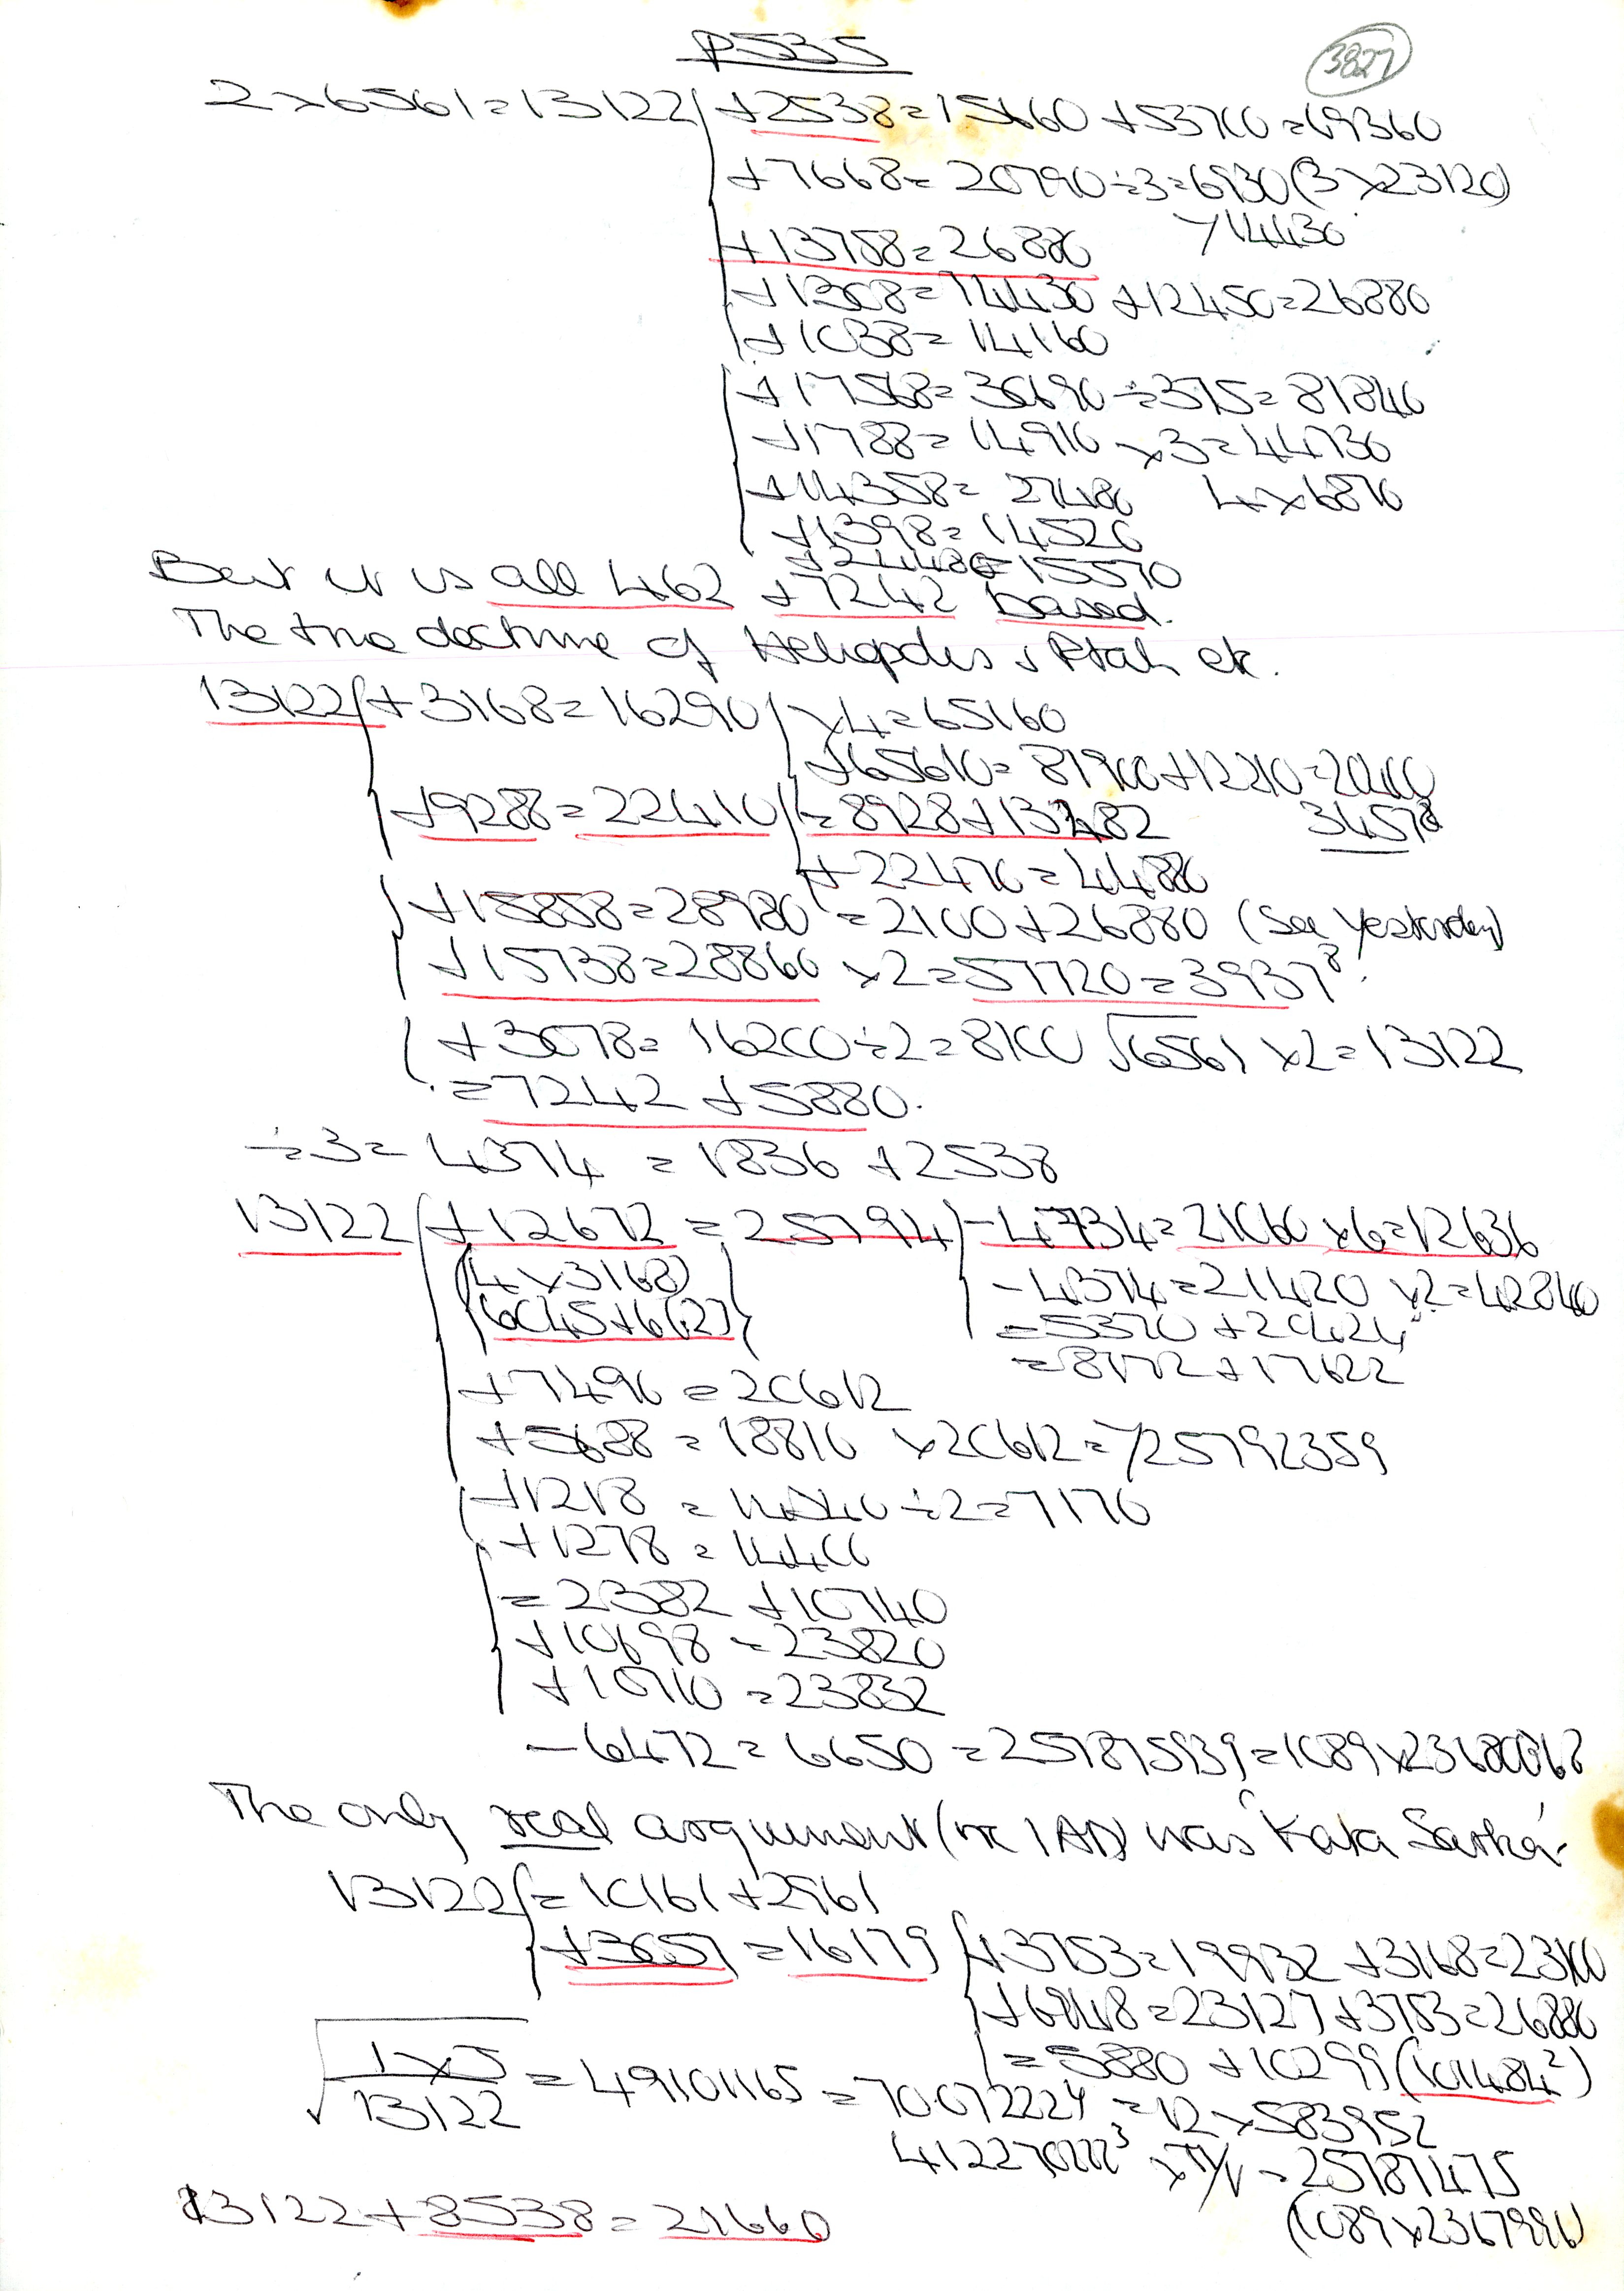 P535
3827
2×6561=13122 +2538=15660 +53700=69360
+7668=20790÷3=6930 (3×23120)
/14430
+13758=26880
+1308=14430 +12450=26880
+1038=14160
+17568=30690÷375=81840
+1788=14910 ×3=44730
+14358=27480 4×6870
+1398=14520
+2448=15570
But it is all 462 +7242 based.
The true doctrine of Heliopolis & Ptah etc.
13122 +3168=16290 ×4=65160
+65610=81900+12210=
+9288=22410 =8928+13482 34578
+22470=44880
+15858=28980 =2100+26880 (See Yesterday)
+15738=28860 ×2=57720=3937⁸
+3078=16200÷2=8100 √6561 ×2=13122
=7242 +5880.
÷3=4374 =1836 +2538
13122 +12672=25794 -4734=21060 ×6=12636
(4×3168) -4374=21420 ×2=42840
6045+6627 =5370 +20424
=8172+17622
+7490=20612
+5688=18810 ×20612=/25792359
+1218=14340÷2=7170
+1278=14400
=2382 +10740
+10698=23820
+10710=23832
-6472=6650=257875939=1089×23680068
The only real argument was Kaka Sarkar
13122 =10161+2961
+3057=16179 +3753=19932 +3168=23100
+6948=23127+3753=26880
=5880 +10299 (101484²)
√1×5/13122 =49101165 =70072224 =12×583952
412270222³ ×π/√=25787475
(1089×2367996)
13122+8538=21660